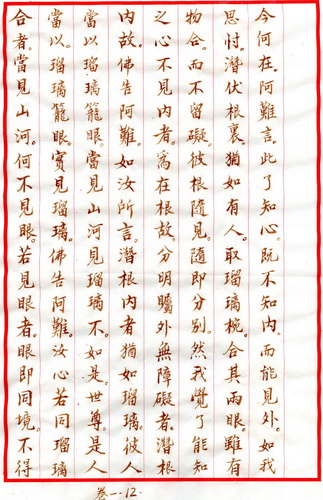 今何在。阿難言。此了知心。既不知內。而能見外。如我
思忖。潛伏根裏。猶如有人。取瑠璃椀。合其兩眼。雖有
物合。而不留礙。彼根隨見。隨即分別。然我覺了能知
之心。不見內者。為在根故。分明矚外。無障礙者。潛根
內故。佛告阿難。如汝所言。潛根內者。猶如瑠璃。彼人
當以瑠璃籠眼。當見山河。見瑠璃不。如是。世尊。是人
當以瑠璃籠眼。實見瑠璃。佛告阿難。汝心若同瑠璃
合者。當見山河。何不見眼。若見眼者。眼即同境。不得
卷一.12.